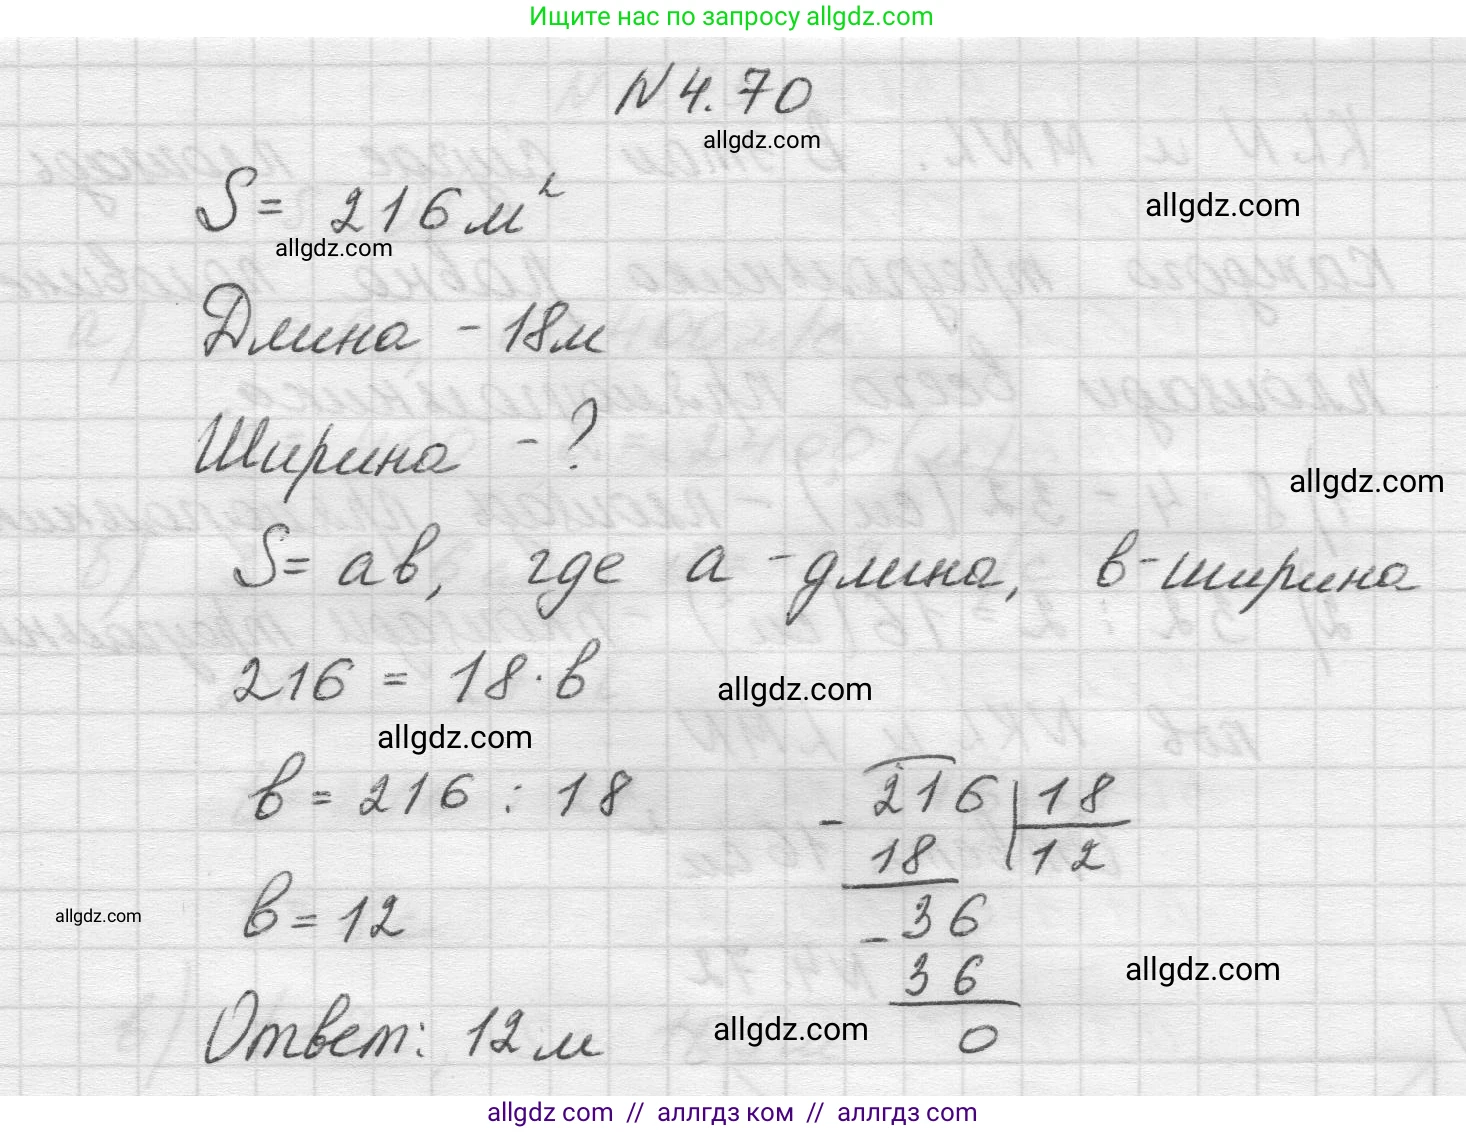 Ищите нас по запросу allgdz.com
N 4.70
allgdz.com
S = 216 м²
allgdz.com
allgdz.com
Длина - 18 м
Ширина - ?
allgdz.com
S = ав, где а - длина, в - ширина
216 = 18 · в
allgdz.com
allgdz.com
в = 216 : 18
216 | 18
- 18 | 12
в = 12
allgdz.com
36
- 36
0
allgdz.com
Ответ: 12 м
allgdz.com
allgdz com // аллгдз ком // аллгдз com